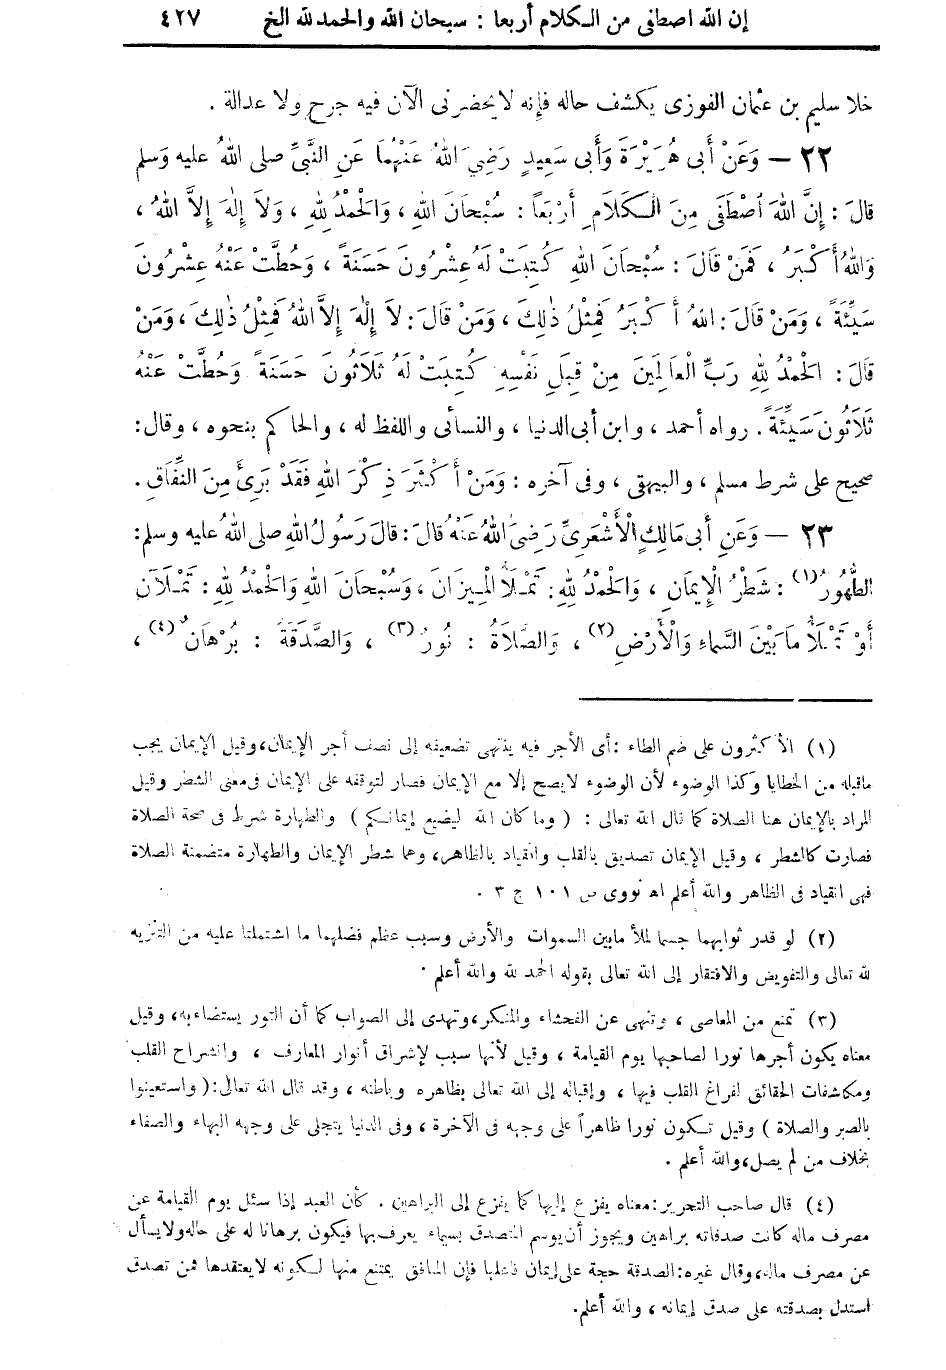 إن الله اصطفى من الكلام أربعا : سبحان الله والحمد لله الخ ٤٢٧
خلا سليم بن عثمان الفوزى يكشف حاله فإنه لا يحضرنى الآن فيه جرح ولا عدالة .
٢٢ — وَعَنْ أَبى هُرَيْرَةَ وَأَبى سَعِيدٍ رَضِيَ اللهُ عَنْهُمَا عَنِ النَّبِىِّ صلى اللهُ عليه وَسلم
قالَ : إِنَّ اللهَ اصْطَفَى مِنَ الْكَلَامِ أَرْبَعاً : سُبْحَانَ اللهِ ، وَالْحَمْدُ لِلهِ ، وَلاَ إِلهَ إِلاَّ اللهُ ،
وَاللهُ أَكْبَرُ ، فَمَنْ قَالَ : سُبْحَانَ اللهِ كُتِبَتْ لَهُ عِشْرُونَ حَسَنَةً ، وَحُطَّتْ عَنْهُ عِشْرُونَ
سَيِّئَةً ، وَمَنْ قَالَ : اللهُ أَكْبَرُ فَمِثْلُ ذٰلِكَ ، وَمَنْ قَالَ : لاَ إِلٰهَ إِلاَّ اللهُ فَمِثْلُ ذٰلِكَ ، وَمَنْ
قَالَ : الْحَمْدُ لِلهِ رَبِّ الْعَالَمِينَ مِنْ قِبَلِ نَفْسِهِ كُتِبَتْ لَهُ ثَلَاثُونَ حَسَنَةً وَحُطَّتْ عَنْهُ
ثَلَاثُونَ سَيِّئَةً . رواه أحمد ، وابن أبى الدنيا ، والنسائى واللفظ له ، والحاكم بنحوه ، وقال :
صحيح على شرط مسلم ، والبيهقى ، وفى آخره : وَمَنْ أَكْثَرَ ذِكْرَ اللهِ فَقَدْ بَرِئَ مِنَ النِّفَاقِ .
٢٣ — وَعَنِ أَبى مَالِكٍ الْأَشْعَرِىِّ رَضِىَ اللهُ عَنْهُ قالَ : قالَ رَسُولُ اللهِ صلى اللهُ عليه وسلم :
الطُّهُورُ (١) : شَطْرُ الْإِيمَانِ ، وَالْحَمْدُ لِلهِ : تَمْلَأُ الْمِيزَانَ ، وَسُبْحَانَ اللهِ وَالْحَمْدُ لِلهِ : تَمْلَآنِ
أَوْ تَمْلَأُ مَا بَيْنَ السَّمَاءِ وَالْأَرْضِ (٢) ، وَالصَّلَاةُ : نُورٌ (٣) ، وَالصَّدَقَةُ : بُرْهَانٌ (٤) ،
(١) الأكثرون على ضم الطاء : أى الأجر فيه ينتهى تضعيفه إلى نصف أجر الإيمان، وقيل الإيمان يجب
ماقبله من الخطايا وكذا الوضوء لأن الوضوء لايصح إلا مع الإيمان فصار لتوقفه على الإيمان فى معنى الشطر وقيل
المراد بالإيمان هنا الصلاة كما قال الله تعالى : ( وما كان الله ليضيع إيمانكم ) والطهارة شرط فى صحة الصلاة
فصارت كالشطر ، وقيل الإيمان تصديق بالقلب وانقياد بالظاهر، وهما شطر الإيمان والطهارة متضمنة الصلاة
فهى انقياد فى الظاهر والله أعلم اه نووى ص ١٠١ ج ٣ .
(٢) لو قدر ثوابهما جسما لملأ مابين السموات والأرض وسبب عظم فضلهما ما اشتملتا عليه من التنزيه
لله تعالى والتفويض والافتقار إلى الله تعالى بقوله الحمد لله والله أعلم .
(٣) تمنع من المعاصى ، وتنهى عن الفحشاء والمنكر، وتهدى إلى الصواب كما أن النور يستضاء به، وقيل
معناه يكون أجرها نورا لصاحبها يوم القيامة ، وقيل لأنها سبب لإشراق أنوار المعارف ، وانشراح القلب
ومكاشفات الحقائق لفراغ القلب فيها ، وإقباله إلى الله تعالى بظاهره وباطنه ، وقد قال الله تعالى: ( واستعينوا
بالصبر والصلاة ) وقيل تكون نورا ظاهراً على وجهه فى الآخرة ، وفى الدنيا يتجلى على وجهه البهاء والصفاء
بخلاف من لم يصل، والله أعلم .
(٤) قال صاحب التحرير: معناه يفزع إليها كما يفزع إلى البراهين . كأن العبد إذا سئل يوم القيامة عن
مصرف ماله كانت صدقاته براهين ويجوز أن يوسم المتصدق بسيماء يعرف بها فيكون برهانا له على حاله ولا يسأل
عن مصرف ماله، وقال غيره: الصدقة حجة على إيمان فاعلها فإن المنافق يمتنع منها لكونه لا يعتقدها فمن تصدق
استدل بصدقته على صدق إيمانه ، والله أعلم.